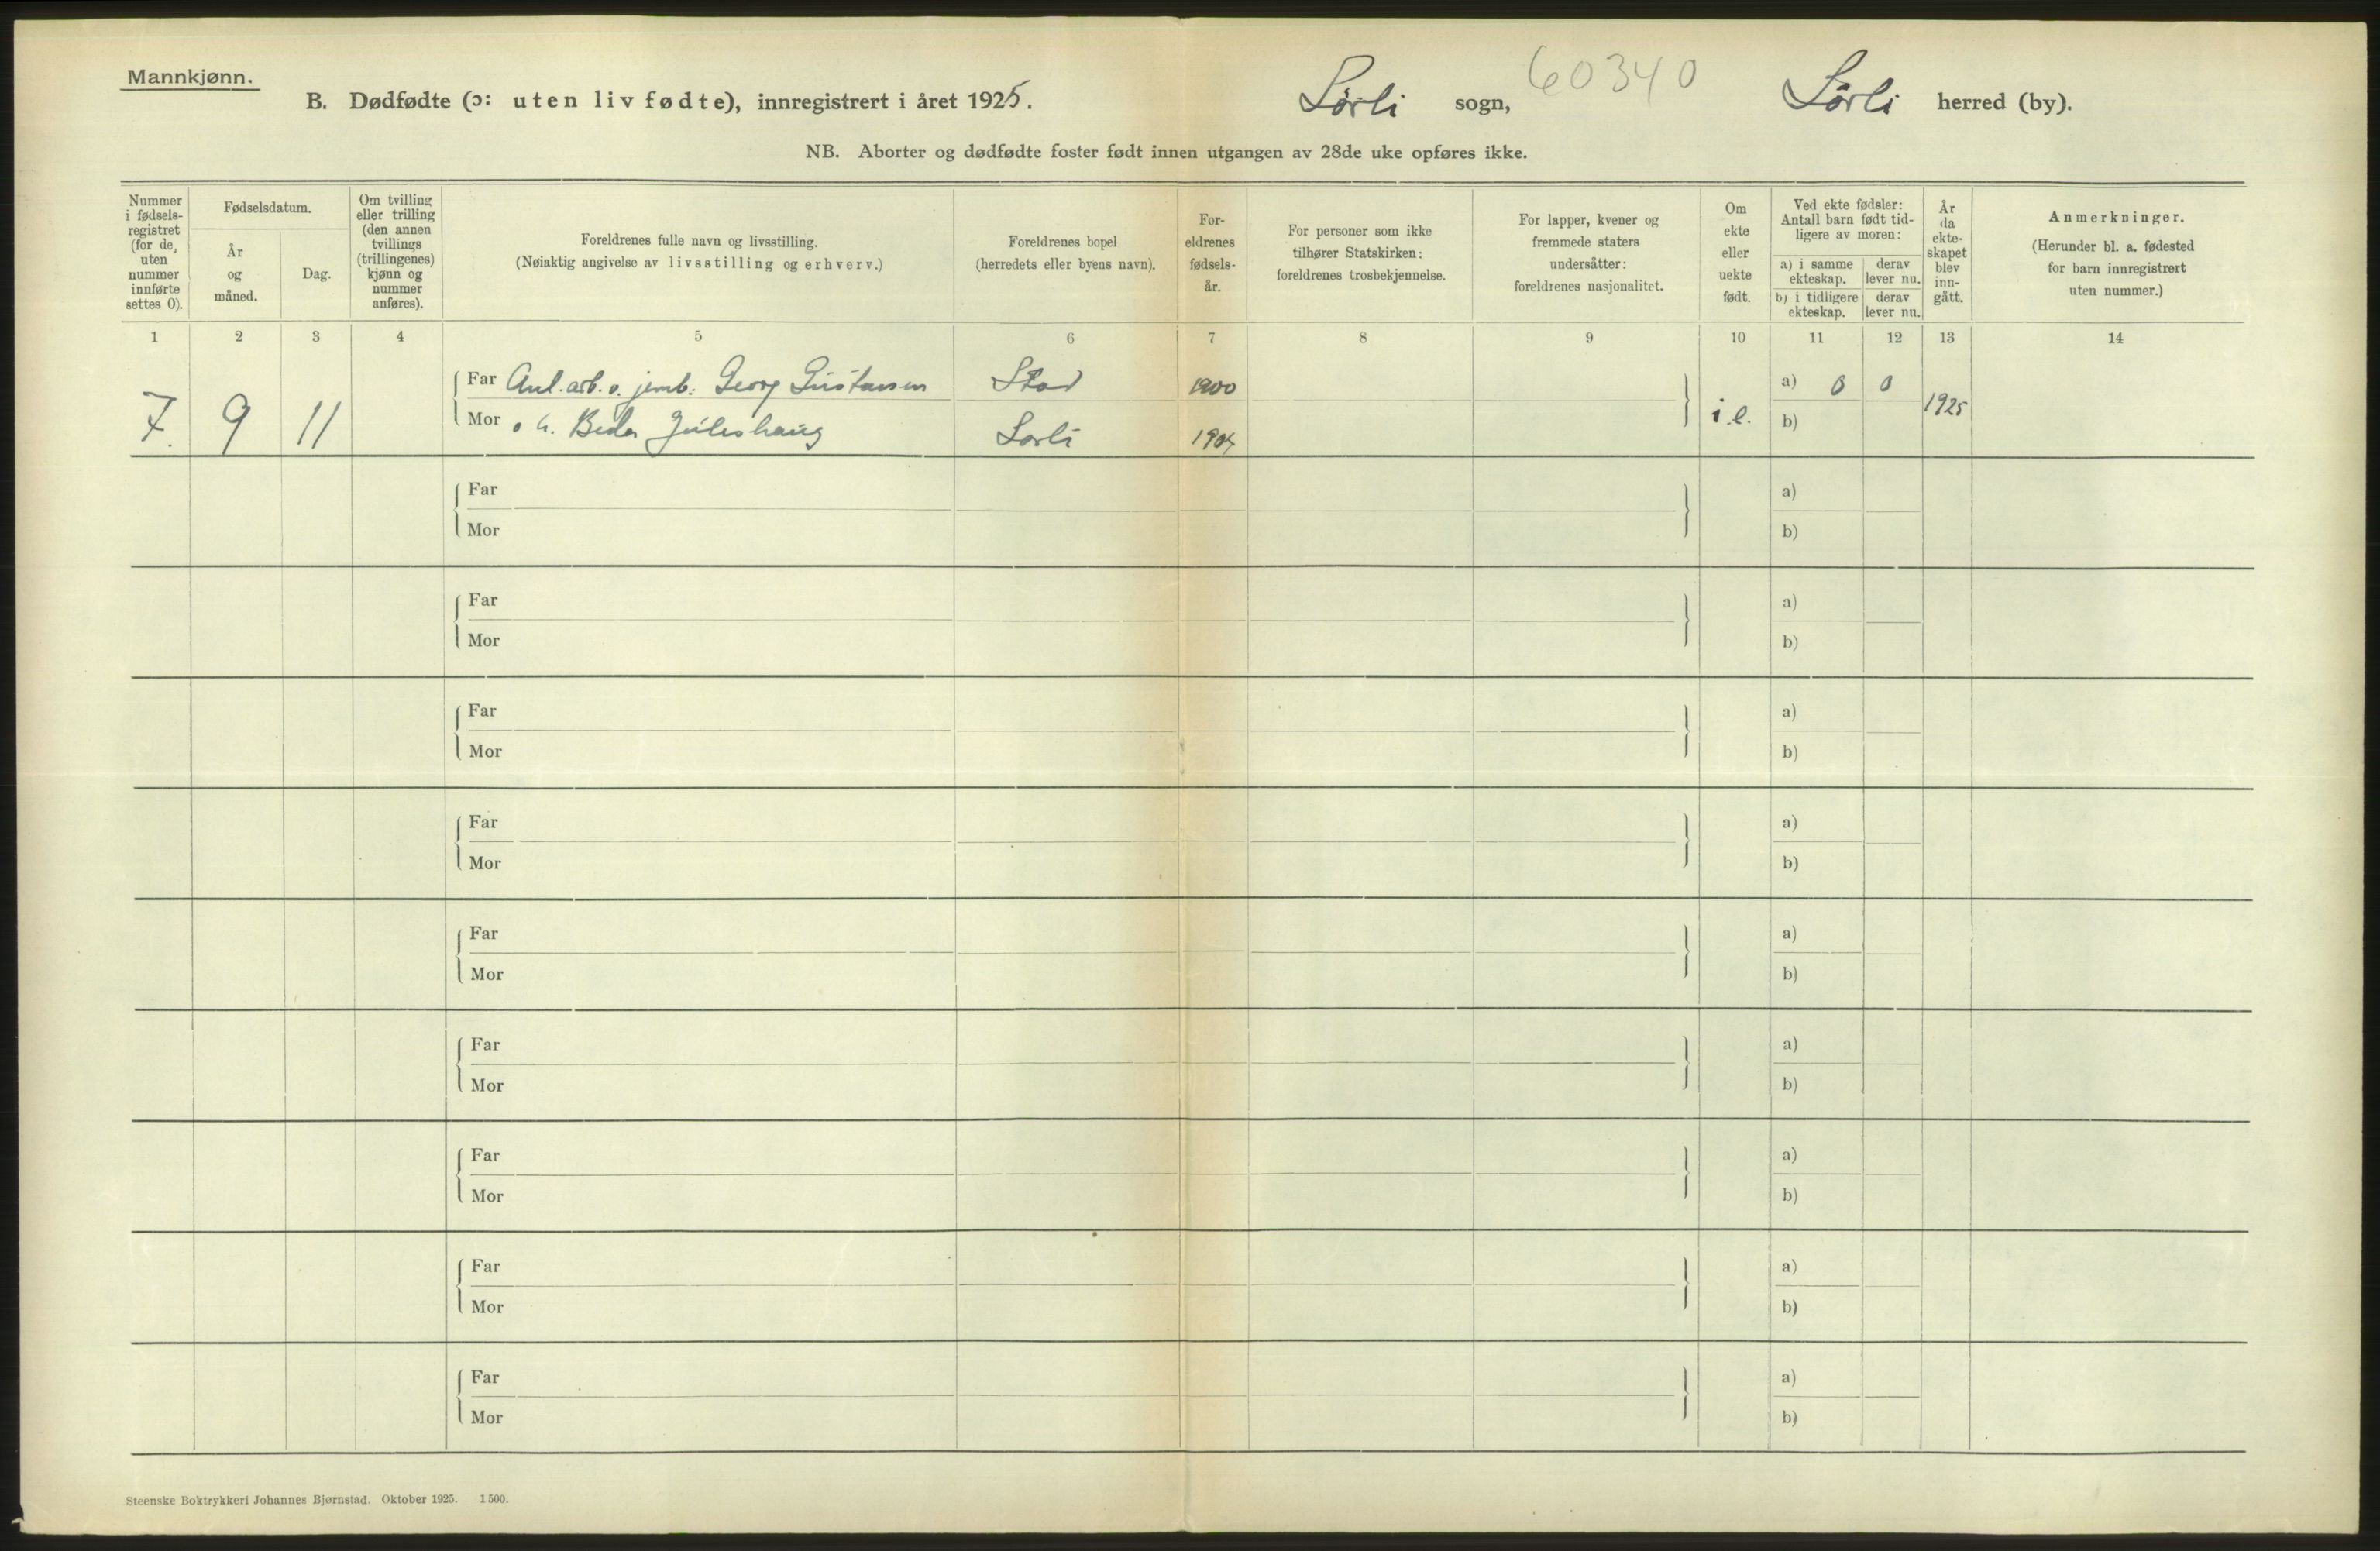 Mannkjønn.
B. Dødfødte (ɔ: uten liv fødte), innregistrert i året 1925.
Sörli sogn, 60340 Sörli herred (by).
NB. Aborter og dødfødte foster født innen utgangen av 28de uke opføres ikke.
Nummer
i fødsels-
registret
(for de,
uten
nummer
innførte
settes 0).
Fødselsdatum.
År
og
måned.
Dag.
Om tvilling
eller trilling
(den annen
tvillings
(trillingenes)
kjønn og
nummer
anføres).
Foreldrenes fulle navn og livsstilling.
(Nøiaktig angivelse av livsstilling og erhverv.)
Foreldrenes bopel
(herredets eller byens navn).
For-
eldrenes
fødsels-
år.
For personer som ikke
tilhører Statskirken:
foreldrenes trosbekjennelse.
For lapper, kvener og
fremmede staters
undersåtter:
foreldrenes nasjonalitet.
Om
ekte
eller
uekte
født.
Ved ekte fødsler:
Antall barn født tid-
ligere av moren:
a) i samme
ekteskap.
derav
lever nu.
b) i tidligere
ekteskap.
derav
lever nu.
År
da
ekte-
skapet
blev
inn-
gått.
Anmerkninger.
(Herunder bl. a. fødested
for barn innregistrert
uten nummer.)
1 2 3 4 5 6 7 8 9 10 11 12 13 14
Far Anl. arb. v. jernb. Georg Gustavsen Stod 1900 a) 0 0
7. 9 11 Mor o. h. Beda Juleshaug Sorli 1904 i.e. b) 1925
Far a)
Mor b)
Far a)
Mor b)
Far a)
Mor b)
Far a)
Mor b)
Far a)
Mor b)
Far a)
Mor b)
Far a)
Mor b)
Far a)
Mor b)
Far a)
Mor b)
Steenske Boktrykkeri Johannes Bjørnstad. Oktober 1925. 1500.